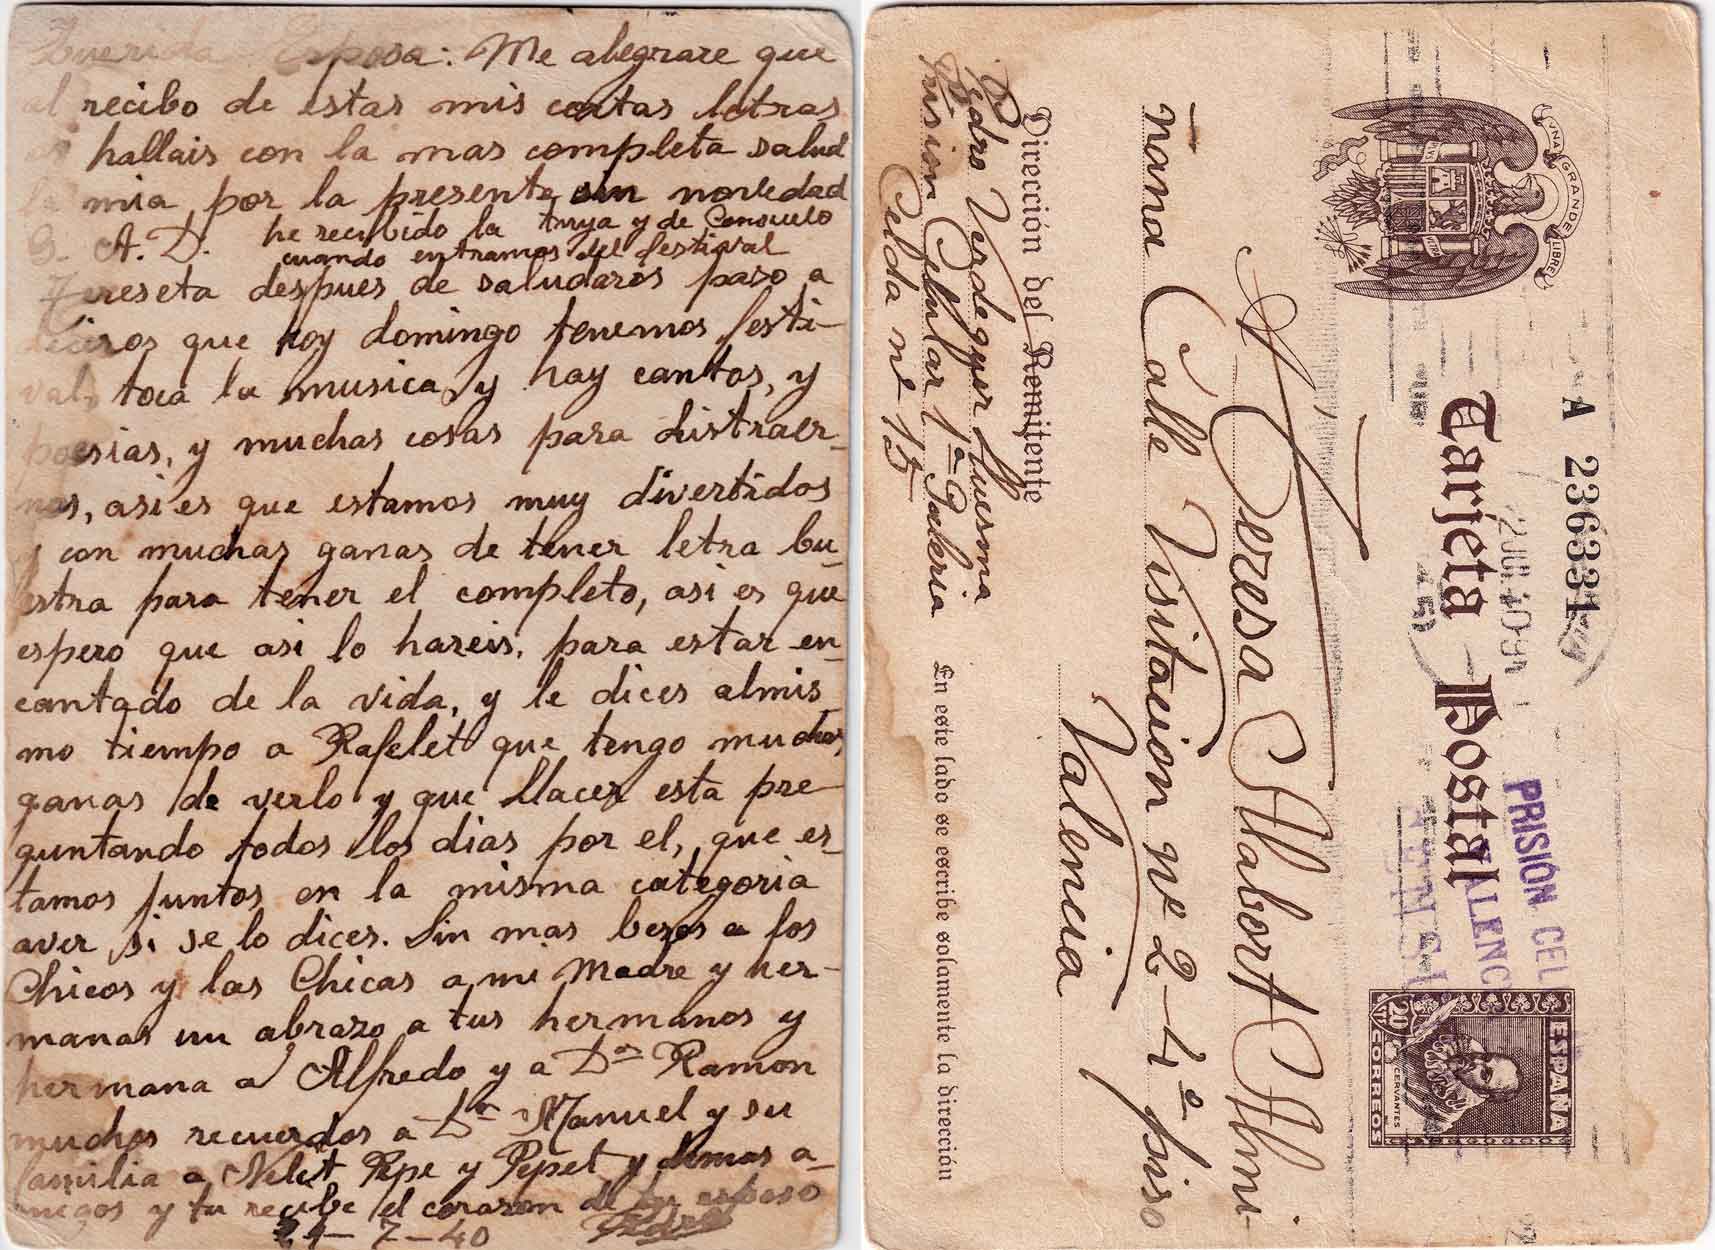 Querida Esposa: Me alegrare que
al recibo de estas mis cortas letras
os hallais con la mas completa salud
la mia por la presente sin novedad
G. A. D. he recibido la tuya y de Consuelo
cuando entramos del festival
Tereseta despues de saludaros paso a
deciros que hoy domingo tenemos festi-
val, toca la musica, y hay cantos, y
poesias, y muchas cosas para distraer-
nos, asi es que estamos muy divertidos
y con muchas ganas de tener letra bu-
estra para tener el completo, asi es que
espero que asi lo hareis, para estar en-
cantado de la vida, y le dices almis-
mo tiempo a Rafelet que tengo muchas
ganas de verlo y que Llacer esta pre-
guntando todos los dias por el, que es-
tamos juntos en la misma categoria
aver si se lo dices. Sin mas besos a los
Chicos y las Chicas a mi Madre y her-
manas un abrazo a tus hermanos y
hermana a Alfredo y a Dn Ramon
muchos recuerdos a Dn Manuel y su
familia a Nelet Pepe y Pepet y demas a-
migos y tu recibe el corazon de tu esposo
21-7-40 Pedro
UNA GRANDE LIBRE
A 236331
Tarjeta Postal
PRISIÓN CEL
VALENC
ESPAÑA
CORREOS
20
CERVANTES
A Teresa Alabort Almi-
ñana Calle Visitacion nº 2-4º piso
Valencia
Dirección del Remitente
Pedro Verdeguer Huesma
Prision Celular 1ª Galeria
Celda nº 15
En este lado se escribe solamente la dirección